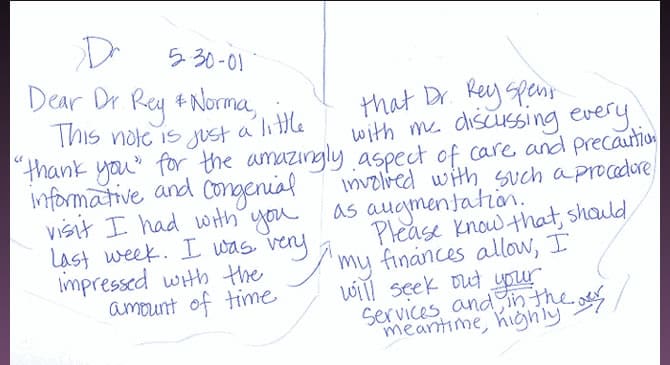 Dr
5-30-01
Dear Dr Rey & Norma,
This note is just a little
"thank you" for the amazingly
informative and congenial
visit I had with you
last week. I was very
impressed with the
amount of time
that Dr. Rey spent
with me discussing every
aspect of care and precaution
involved with such a procedure
as augmentation.
Please know that, should
my finances allow, I
will seek out your
services and, in the
meantime, highly
over